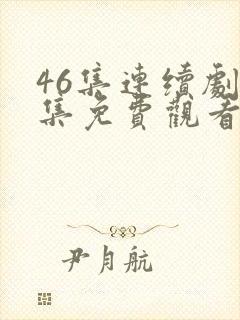 46集連續劇
集免費觀看
尹月航